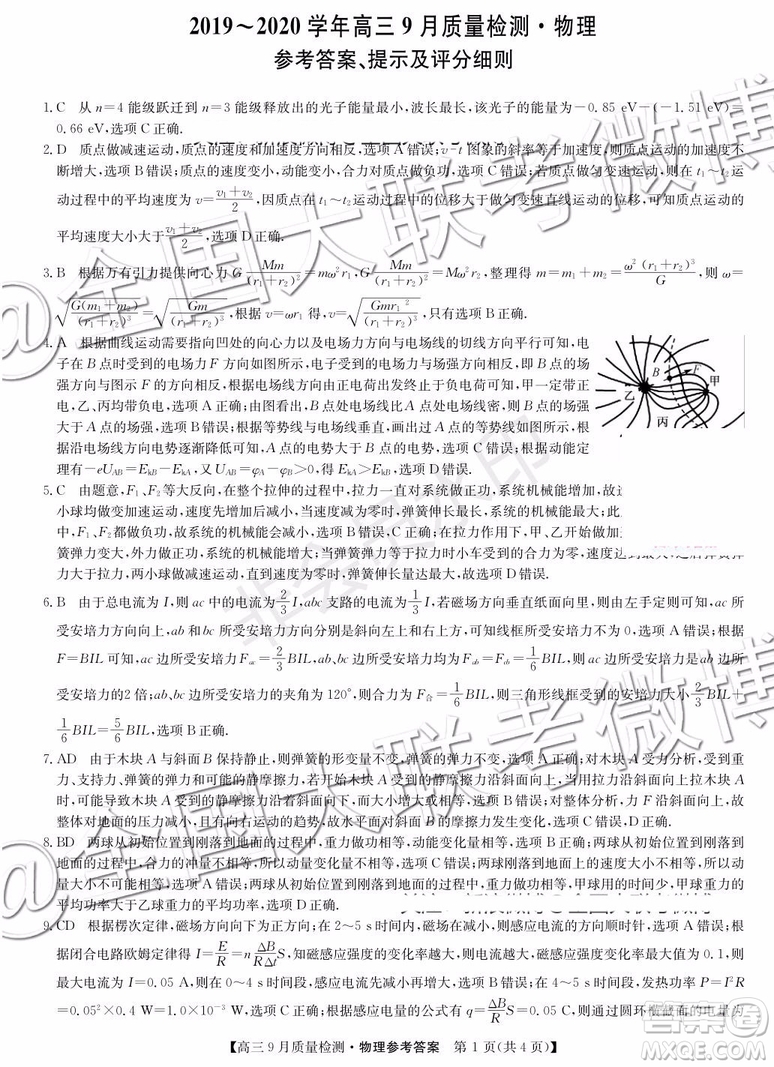 2019～2020 学年高三 9 月质量检测·物理
参考答案、提示及评分细则
1. C 从 n=4 能级跃迁到 n=3 能级释放出的光子能量最小,波长最长,该光子的能量为－0.85 eV－(－1.51 eV)=
0.66 eV,选项 C 正确.
2. D 质点做减速运动,质点的速度和加速度方向相反,选项 A 错误;v-t 图象的斜率等于加速度,则质点运动的加速度不
断增大,选项 B 错误;质点的速度变小,动能变小,合外力对质点做负功,选项 C 错误;若质点做匀变速运动,则在 t₁～t₂ 运
动过程中的平均速度为 v=(v₁+v₂)/2,因质点在 t₁～t₂ 运动过程中的位移大于做匀变速直线运动的位移,可知质点运动的
平均速度大小大于(v₁+v₂)/2,选项 D 正确.
3. B 根据万有引力提供向心力 G Mm/(r₁+r₂)²=mω²r₁,G Mm/(r₁+r₂)²=Mω²r₂,整理得 m=m₁+m₂=ω²(r₁+r₂)³/G,则 ω=
√(G(m₁+m₂)/(r₁+r₂)³)=√(Gm/(r₁+r₂)³),根据 v=ωr₁ 得,v=√(Gmr₁²/(r₁+r₂)³),只有选项 B 正确.
4. A 根据曲线运动需要指向凹处的向心力以及电场力方向与电场线的切线方向平行可知,电
子在 B 点时受到的电场力 F 方向如图所示,电子受到的电场力与场强方向相反,即 B 点的场
强方向与图示 F 的方向相反,根据电场线方向由正电荷出发终止于负电荷可知,甲一定带正
电,乙、丙均带负电,选项 A 正确;由图看出,B 点处电场线比 A 点处电场线密,则 B 点的场强
大于 A 点的场强,选项 B 错误;根据等势线与电场线垂直,画出过 A 点的等势线如图所示,根
据沿电场线方向电势逐渐降低可知,A 点的电势大于 B 点的电势,选项 C 错误;根据动能定
理有－eUAB=EkB－EkA,又 UAB=φA－φB>0,得 EkA>EkB,选项 D 错误.
甲
乙
丙
B
F
5. C 由题意,F₁、F₂ 等大反向,在整个拉伸的过程中,拉力一直对系统做正功,系统机械能增加,故选
小球均做变加速运动,速度减小为零时,弹簧伸长最长,选项 A 错误;在整个过程
中,F₁、F₂ 都做负功,故系统的机械能会减小,选项 B 错误,C 正确;在拉力作用下,甲、乙开始做加
簧弹力变大,外力做正功,系统的机械能增大;当弹簧弹力等于拉力时小车受到的合力为零,速度达
力,两小球做减速运动,速度到零时,弹簧伸长量达最大,选项 D 错误.
6. B 由于总电流为 I,则 ac 中的电流为 2/3 I,abc 支路的电流为 1/3 I,若磁场方向垂直纸面向里,则由左手定则可知,ac 所
受安培力方向向上,ab 和 bc 所受安培力方向分别是斜向左上和右上方,可知线框所受安培力不为 0,选项 A 错误;根据
F=BIL 可知,ac 边所受安培力 Fac=2/3 BIL,ab、bc 边所受安培力均为 Fab=Fbc=1/6 BIL,选项 B 正确,ac 边所受安培力为 ab 边所受
安培力的2倍;ab、bc 边所受安培力的夹角为 120°,则合力为 F合=1/6 BIL,则三角形线框受到的安培力大小 2/3 BIL+
1/6 BIL=5/6 BIL,选项 D 错误.
7. AD 由于木块 A 与斜面 B 保持静止,则弹簧的形变量不变,弹簧的弹力不变,选项 A 正确;对木块 A 受力分析,受重
力、支持力、弹簧的弹力和可能的静摩擦力,若开始木块 A 受到的静摩擦力沿斜面向上,则当用力沿斜面向上拉木块 A
时,可能导致木块 A 受到的静摩擦力沿着斜面向下,而大小可能增大、减小或不变,选项 B、C 错误;对木块 A 和斜面体
整体对地面的压力减小,且有向右运动的趋势,故水平面对斜面 B 的摩擦力发生变化,选项 D 正确.
8. BD 两球从初始位置到刚落到地面的过程中,重力做功相等,动能变化量相等,初动能相等,则两球刚落到地面时的动能
相等,选项 A 错误,B 正确;两球从初始位置到刚落到地面的过程中,初速度大小相等,刚落到地面上的速度大小相等,但
速度方向不同,所以速度变化量不相等,所以动量变化量不相等,选项 C 错误;两球从初始位置到刚落到
地面过程中,两球重力做功相等,但甲球运动的时间小于乙球运动的时间,甲球用的时间少,甲球重力的
平均功率大于乙球重力的平均功率,选项 D 正确.
9. CD 根据楞次定律,磁场方向向下为正方向;在 2～5 s 时间内,感应电流的方向始终为顺时针,选项 A 错误;根
据闭合电路欧姆定律得 I=E/R=n ΔB/(RΔt) S,知磁感应强度的变化率越大,则电流越大,磁感应强度变化率最大值为 0.1,则
最大电流为 I=0.05 A,在 0～4 s 时间段,感应电流先减小后不变,选项 B 错误;在 4～5 s 时间内,发热功率 P=I²R
=0.05²×0.4 W=1.0×10⁻³ W,选项 C 正确;根据感应电量的公式 q=ΔB/R S=0.05 C,则通过圆环横截面的电量为
【高三 9 月质量检测·物理参考答案 第 1 页(共 4 页)】
@全国大联考微博
@全国大联考微博
非会员水印